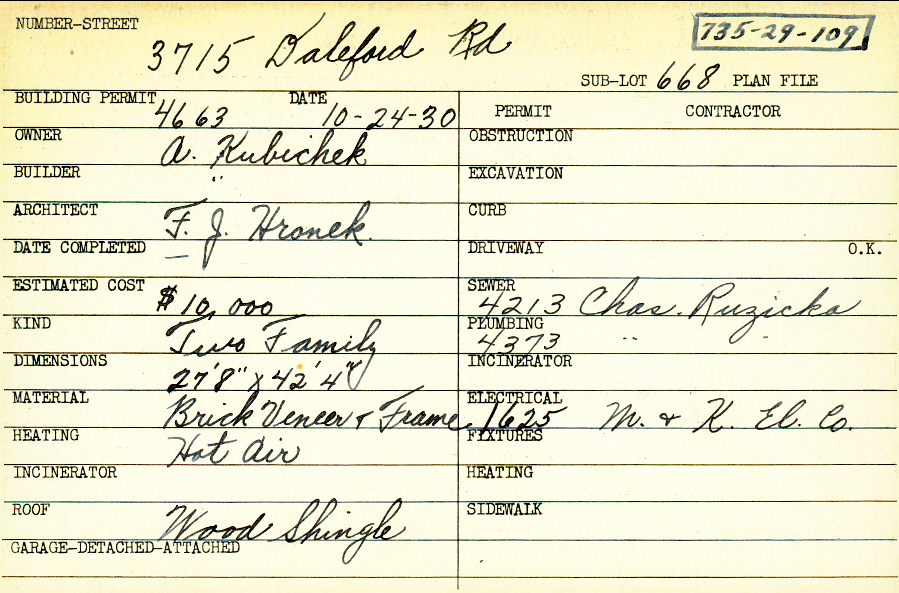 NUMBER-STREET
3715 Daleford Rd
735-29-109
SUB-LOT 668 PLAN FILE
BUILDING PERMIT 4663 DATE 10-24-30
PERMIT CONTRACTOR
OWNER A. Kubichek
OBSTRUCTION
BUILDER "
EXCAVATION
ARCHITECT F. J. Hronek.
CURB
DATE COMPLETED —
DRIVEWAY O.K.
ESTIMATED COST $10,000
SEWER 4213 Chas. Ruzicka
KIND Two Family
PLUMBING 4373 " "
DIMENSIONS 27'8" x 42'4"
INCINERATOR
MATERIAL Brick Veneer & Frame.
ELECTRICAL 1625 M. & K. El. Co.
HEATING Hot Air
FIXTURES
INCINERATOR
HEATING
ROOF Wood Shingle
SIDEWALK
GARAGE-DETACHED-ATTACHED